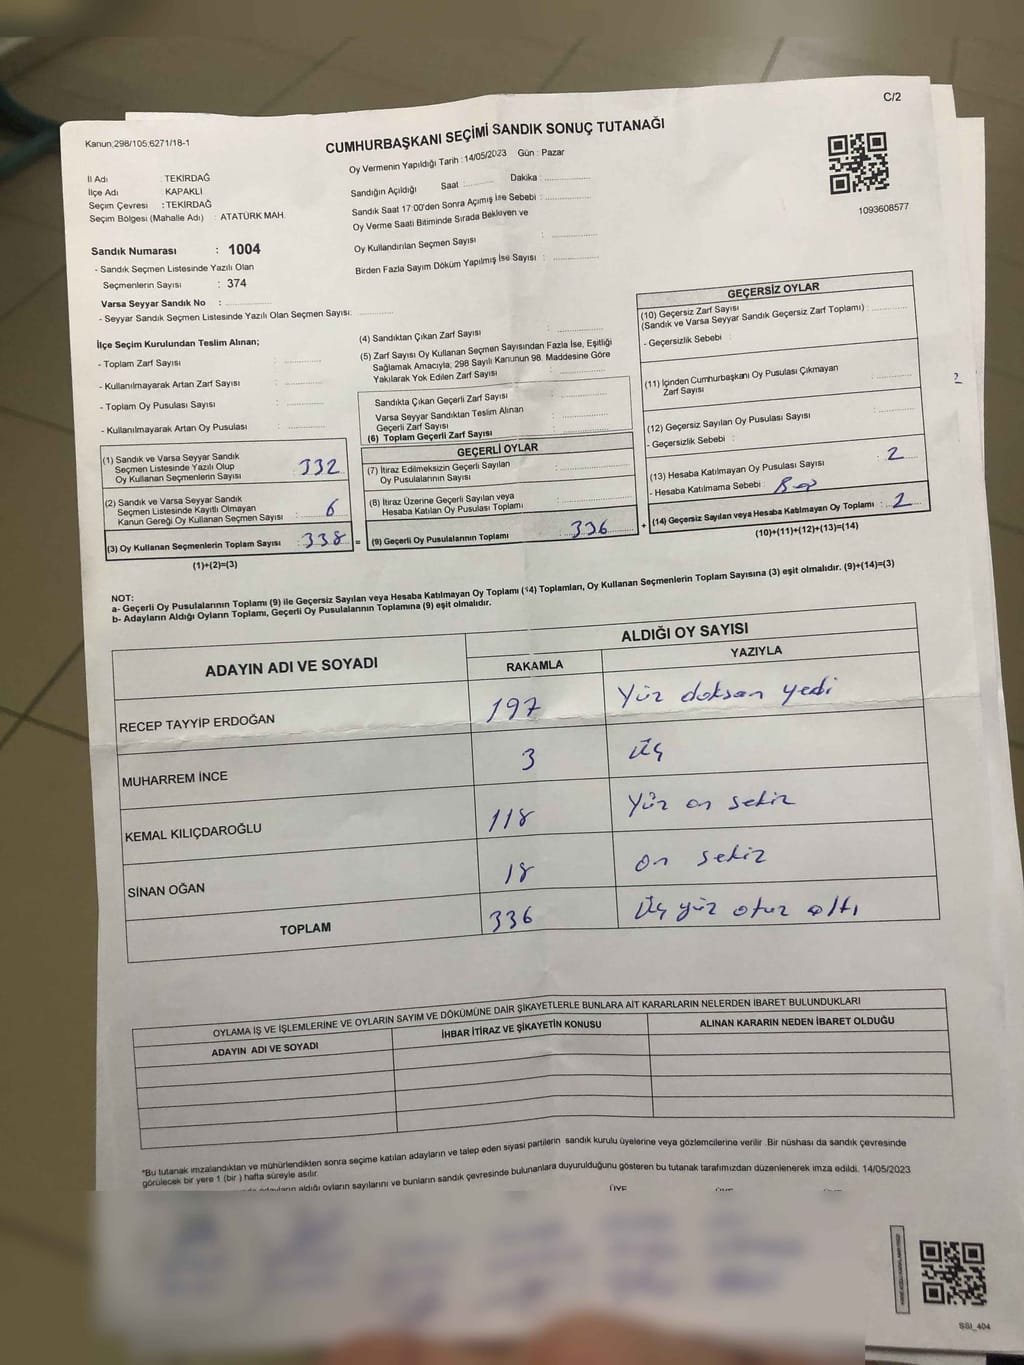 C/2
Kanun;298/105;6271/18-1
CUMHURBAŞKANI SEÇİMİ SANDIK SONUÇ TUTANAĞI
Oy Vermenin Yapıldığı Tarih :14/05/2023 Gün : Pazar
İl Adı : TEKİRDAĞ
İlçe Adı : KAPAKLI
Seçim Çevresi : TEKİRDAĞ
Seçim Bölgesi (Mahalle Adı) : ATATÜRK MAH.
Sandık Numarası : 1004
- Sandık Seçmen Listesinde Yazılı Olan
Seçmenlerin Sayısı : 374
Varsa Seyyar Sandık No :
- Seyyar Sandık Seçmen Listesinde Yazılı Olan Seçmen Sayısı:
Sandığın Açıldığı Saat : Dakika :
Sandık Saat 17:00'den Sonra Açımış İse Sebebi :
Oy Verme Saati Bitiminde Sırada Bekliyen ve
Oy Kullandırılan Seçmen Sayısı :
Birden Fazla Sayım Döküm Yapılmış İse Sayısı :
1093608577
İlçe Seçim Kurulundan Teslim Alınan;
- Toplam Zarf Sayısı :
- Kullanılmayarak Artan Zarf Sayısı :
- Toplam Oy Pusulası Sayısı :
- Kullanılmayarak Artan Oy Pusulası :
(1) Sandık ve Varsa Seyyar Sandık
Seçmen Listesinde Yazılı Olup
Oy Kullanan Seçmenlerin Sayısı : 332
(2) Sandık ve Varsa Seyyar Sandık
Seçmen Listesinde Kayıtlı Olmayan
Kanun Gereği Oy Kullanan Seçmen Sayısı : 6
(3) Oy Kullanan Seçmenlerin Toplam Sayısı : 338 =
(1)+(2)=(3)
(4) Sandıktan Çıkan Zarf Sayısı :
(5) Zarf Sayısı Oy Kullanan Seçmen Sayısından Fazla İse, Eşitliği
Sağlamak Amacıyla; 298 Sayılı Kanunun 98. Maddesine Göre
Yakılarak Yok Edilen Zarf Sayısı :
Sandıkta Çıkan Geçerli Zarf Sayısı :
Varsa Seyyar Sandıktan Teslim Alınan
Geçerli Zarf Sayısı :
(6) Toplam Geçerli Zarf Sayısı :
GEÇERLİ OYLAR
(7) İtiraz Edilmeksizin Geçerli Sayılan
Oy Pusulalarının Sayısı :
(8) İtiraz Üzerine Geçerli Sayılan veya
Hesaba Katılan Oy Pusulası Toplamı :
(9) Geçerli Oy Pusulalarının Toplamı : 336 +
GEÇERSİZ OYLAR
(10) Geçersiz Zarf Sayısı
(Sandık ve Varsa Seyyar Sandık Geçersiz Zarf Toplamı) :
- Geçersizlik Sebebi :
(11) İçinden Cumhurbaşkanı Oy Pusulası Çıkmayan
Zarf Sayısı :
2
(12) Geçersiz Sayılan Oy Pusulası Sayısı :
- Geçersizlik Sebebi :
(13) Hesaba Katılmayan Oy Pusulası Sayısı : 2
- Hesaba Katılmama Sebebi :
(14) Geçersiz Sayılan veya Hesaba Katılmayan Oy Toplamı : 2
(10)+(11)+(12)+(13)=(14)
NOT:
a- Geçerli Oy Pusulalarının Toplamı (9) ile Geçersiz Sayılan veya Hesaba Katılmayan Oy Toplamı (14) Toplamları, Oy Kullanan Seçmenlerin Toplam Sayısına (3) eşit olmalıdır. (9)+(14)=(3)
b- Adayların Aldığı Oyların Toplamı, Geçerli Oy Pusulalarının Toplamına (9) eşit olmalıdır.
ADAYIN ADI VE SOYADI ALDIĞI OY SAYISI
RAKAMLA YAZIYLA
RECEP TAYYİP ERDOĞAN 197 Yüz doksan yedi
MUHARREM İNCE 3 üç
KEMAL KILIÇDAROĞLU 118 Yüz on sekiz
SİNAN OĞAN 18 on sekiz
TOPLAM 336 üç yüz otuz altı
OYLAMA İŞ VE İŞLEMLERİNE VE OYLARIN SAYIM VE DÖKÜMÜNE DAİR ŞİKAYETLERLE BUNLARA AİT KARARLARIN NELERDEN İBARET BULUNDUKLARI
ADAYIN ADI VE SOYADI İHBAR İTİRAZ VE ŞİKAYETİN KONUSU ALINAN KARARIN NEDEN İBARET OLDUĞU
*Bu tutanak imzalandıktan ve mühürlendikten sonra seçime katılan adayların ve talep eden siyasi partilerin sandık kurulu üyelerine veya gözlemcilerine verilir .Bir nüshası da sandık çevresinde
görülecek bir yere 1 (bir ) hafta süreyle asılır.
aldığı oyların sayılarını ve bunların sandık çevresinde bulunanlara duyurulduğunu gösteren bu tutanak tarafımızdan düzenlenerek imza edildi. 14/05/2023
ÜYE
SSI_404